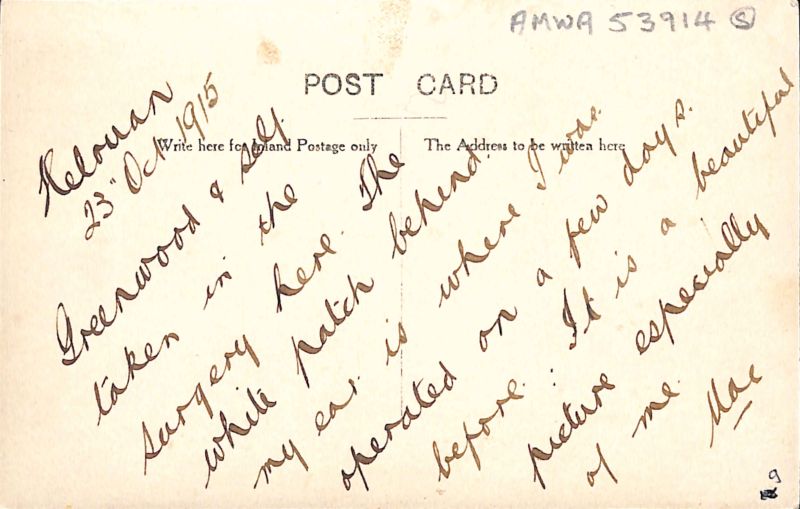 AMWA 53914 S
POST CARD
Write here for Inland Postage only
The Address to be written here
Helouan
23rd Oct 1915
Greenwood & self
taken in the
surgery here. The
white patch behind
my ear is where I was
operated on a few days
before. It is a beautiful
picture especially
of me. Mac
9